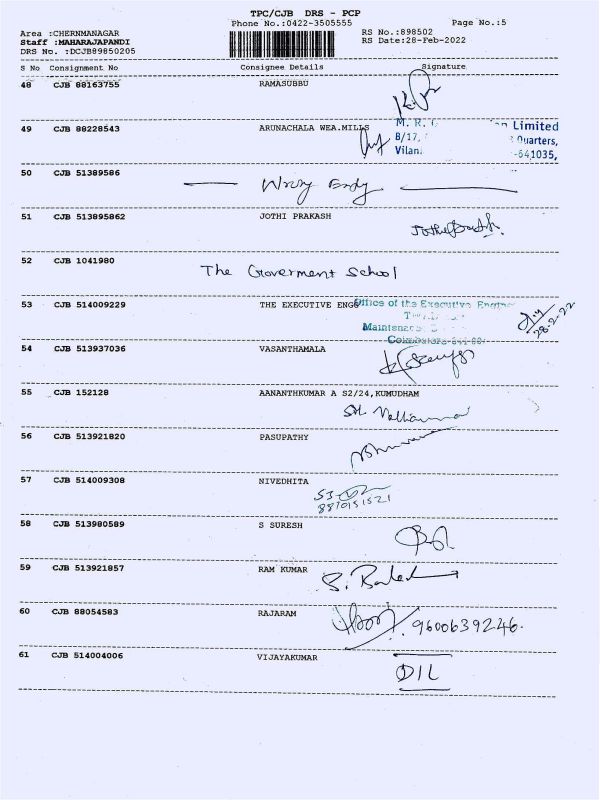 TPC/CJB DRS - PCP
Phone No.:0422-3505555 Page No.:5
Area :CHERNMANAGAR RS No.:898502
Staff :MAHARAJAPANDI RS Date:28-Feb-2022
DRS No. :DCJB89850205
S No Consignment No Consignee Details Signature
48 CJB 88163755 RAMASUBBU
49 CJB 88228543 ARUNACHALA WEA.MILLS
M. R. Limited
B/17, Quarters,
Vilan -641035,
50 CJB 51389586
51 CJB 513895862 JOTHI PRAKASH
52 CJB 1041980 The Goverment School
53 CJB 514009229 THE EXECUTIVE ENGG
Office of the Executive Engine
Maintenanc
Coimbatore-641
28-2-22
54 CJB 513937036 VASANTHAMALA
55 CJB 152128 AANANTHKUMAR A S2/24,KUMUDHAM
56 CJB 513921820 PASUPATHY
57 CJB 514009308 NIVEDHITA
8870151521
58 CJB 513980589 S SURESH
59 CJB 513921857 RAM KUMAR
60 CJB 88054583 RAJARAM 9600639246.
61 CJB 514004006 VIJAYAKUMAR DIL